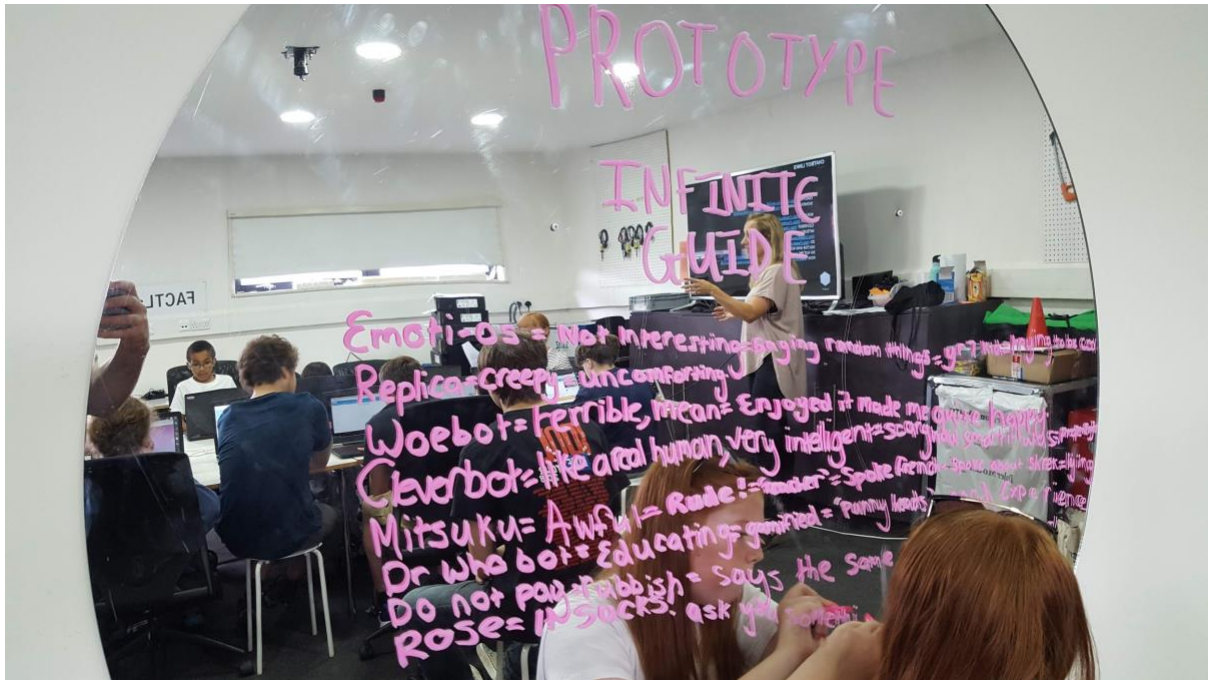 PROTOTYPE
INFINITE
GUIDE
Emoti-os = Not Interesting = Singing random things = yr-7 kid =
Replica = creepy = uncomforting
Woebot = Terrible, mean = Enjoyed it made me quite happy.
Cleverbot = like a real human, very intelligent = scary how smart it was
Mitsuku = Awful = Rude! = = Spoke french = Spoke about Shrek = lying
Dr Who bot = Educating = gamified = Experience
Do not pay = rubbish = says the same
Rose = IN SUCKS! ask you
FACTL
CHATBOT LINKS